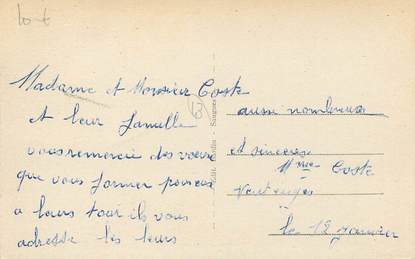 lot
Madame et Monsieur Coste
et leur famille
vous remercie des voeux
que vous former pour eux
a leurs tour ils vous
adresse les leurs
aussi nombreux
et sinceres
Mme Coste
le 12 Janvier